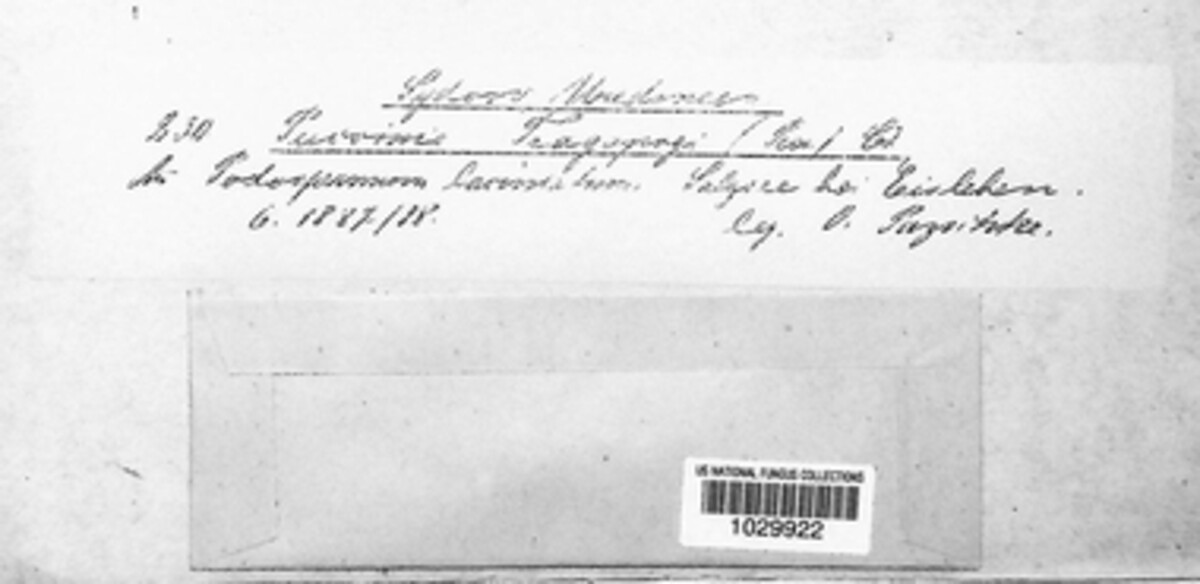 Sydow, Uredineen
230 Puccinia Tragopogi (Pers) Cd.
An Podospermum laciniatum. Salzsee bei Eisleben.
6. 1887/88. leg. O.
US NATIONAL FUNGUS COLLECTIONS
1029922